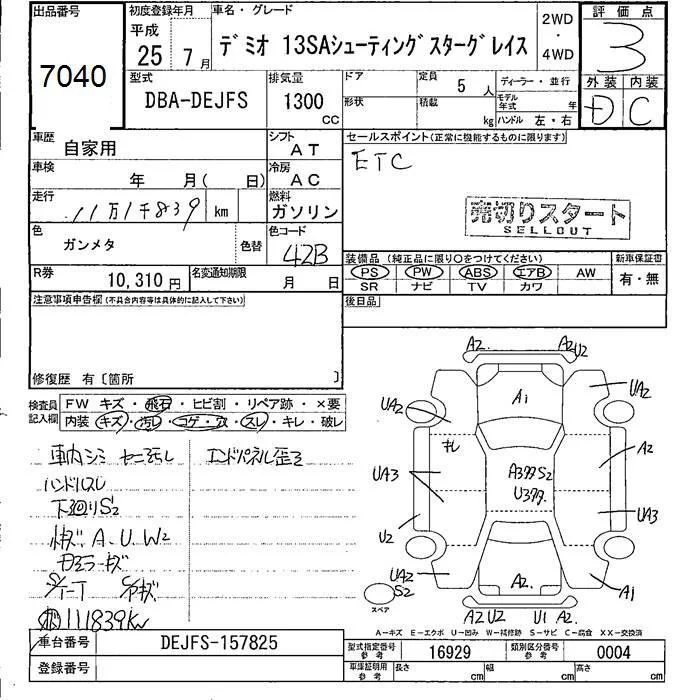 出品番号
7040
初度登録年月
平成
25年 7月
車名・グレード
デミオ 13SAシューティングスターグレイス
2WD
・
4WD
評価点
3
外装 内装
D C
型式
DBA-DEJFS
排気量
1300
CC
ドア
形状
定員 5人
積載 kg
ディーラー・並行
モデル年式 年
ハンドル 左・右
車歴 自家用
シフト AT
車検 年 月( 日)
冷房 AC
走行 11万1千839 km
燃料 ガソリン
色 ガンメタ 色替
色コード 42B
R券 10,310円
名変通知期限 月 日
セールスポイント(正常に機能するものに限ります)
ETC
売切りスタート
SELLOUT
装備品(純正品に限り○をつけてください)
PS PW ABS エアB AW
SR ナビ TV カワ
新車保証書
有・無
後日品
注意事項申告欄(不具合内容等は具体的に記入して下さい)
修復歴 有〔箇所 〕
検査員記入欄
FW キズ・飛石・ヒビ割・リペア跡・×要
内装 キズ・汚レ・コゲ・穴・スレ・キレ・破レ
車内シミ
エンドパネル歪み
ハンドルスレ
下廻りS2
A.U.W2
111839km
A2 A2 U2
A1
UA2
UA2
キレ
A2
UA3
A377 S2
U377
UA3
U2
UA2
S2
A2
A1
スペア
A2 U2 U1 A2
A-キズ E-エクボ U-凹み W-補修跡 S-サビ C-腐食 XX-交換済
車台番号 DEJFS-157825
登録番号
型式指定番号 参考 16929
類別区分番号 参考 0004
車庫証明用 参考 長さ cm 幅 cm 高さ cm